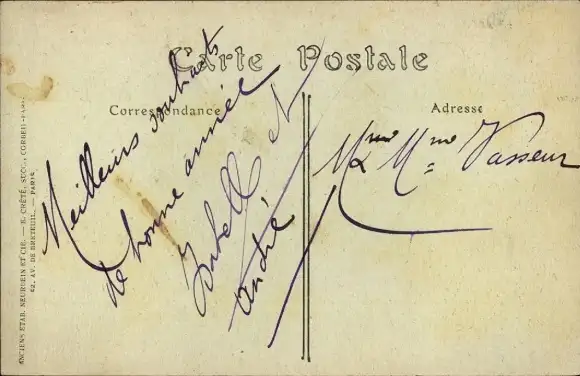 Carte Postale
Correspondance
Adresse
Meilleurs souhaits
de bonne année
Isabelle et
André
Mme Vasseur
ANCIENS ETAB. NEURDEIN ET CIE. — E. CRÉTÉ, SUCC., CORBEIL-PARIS
52, AV. DE BRETEUIL. — PARIS